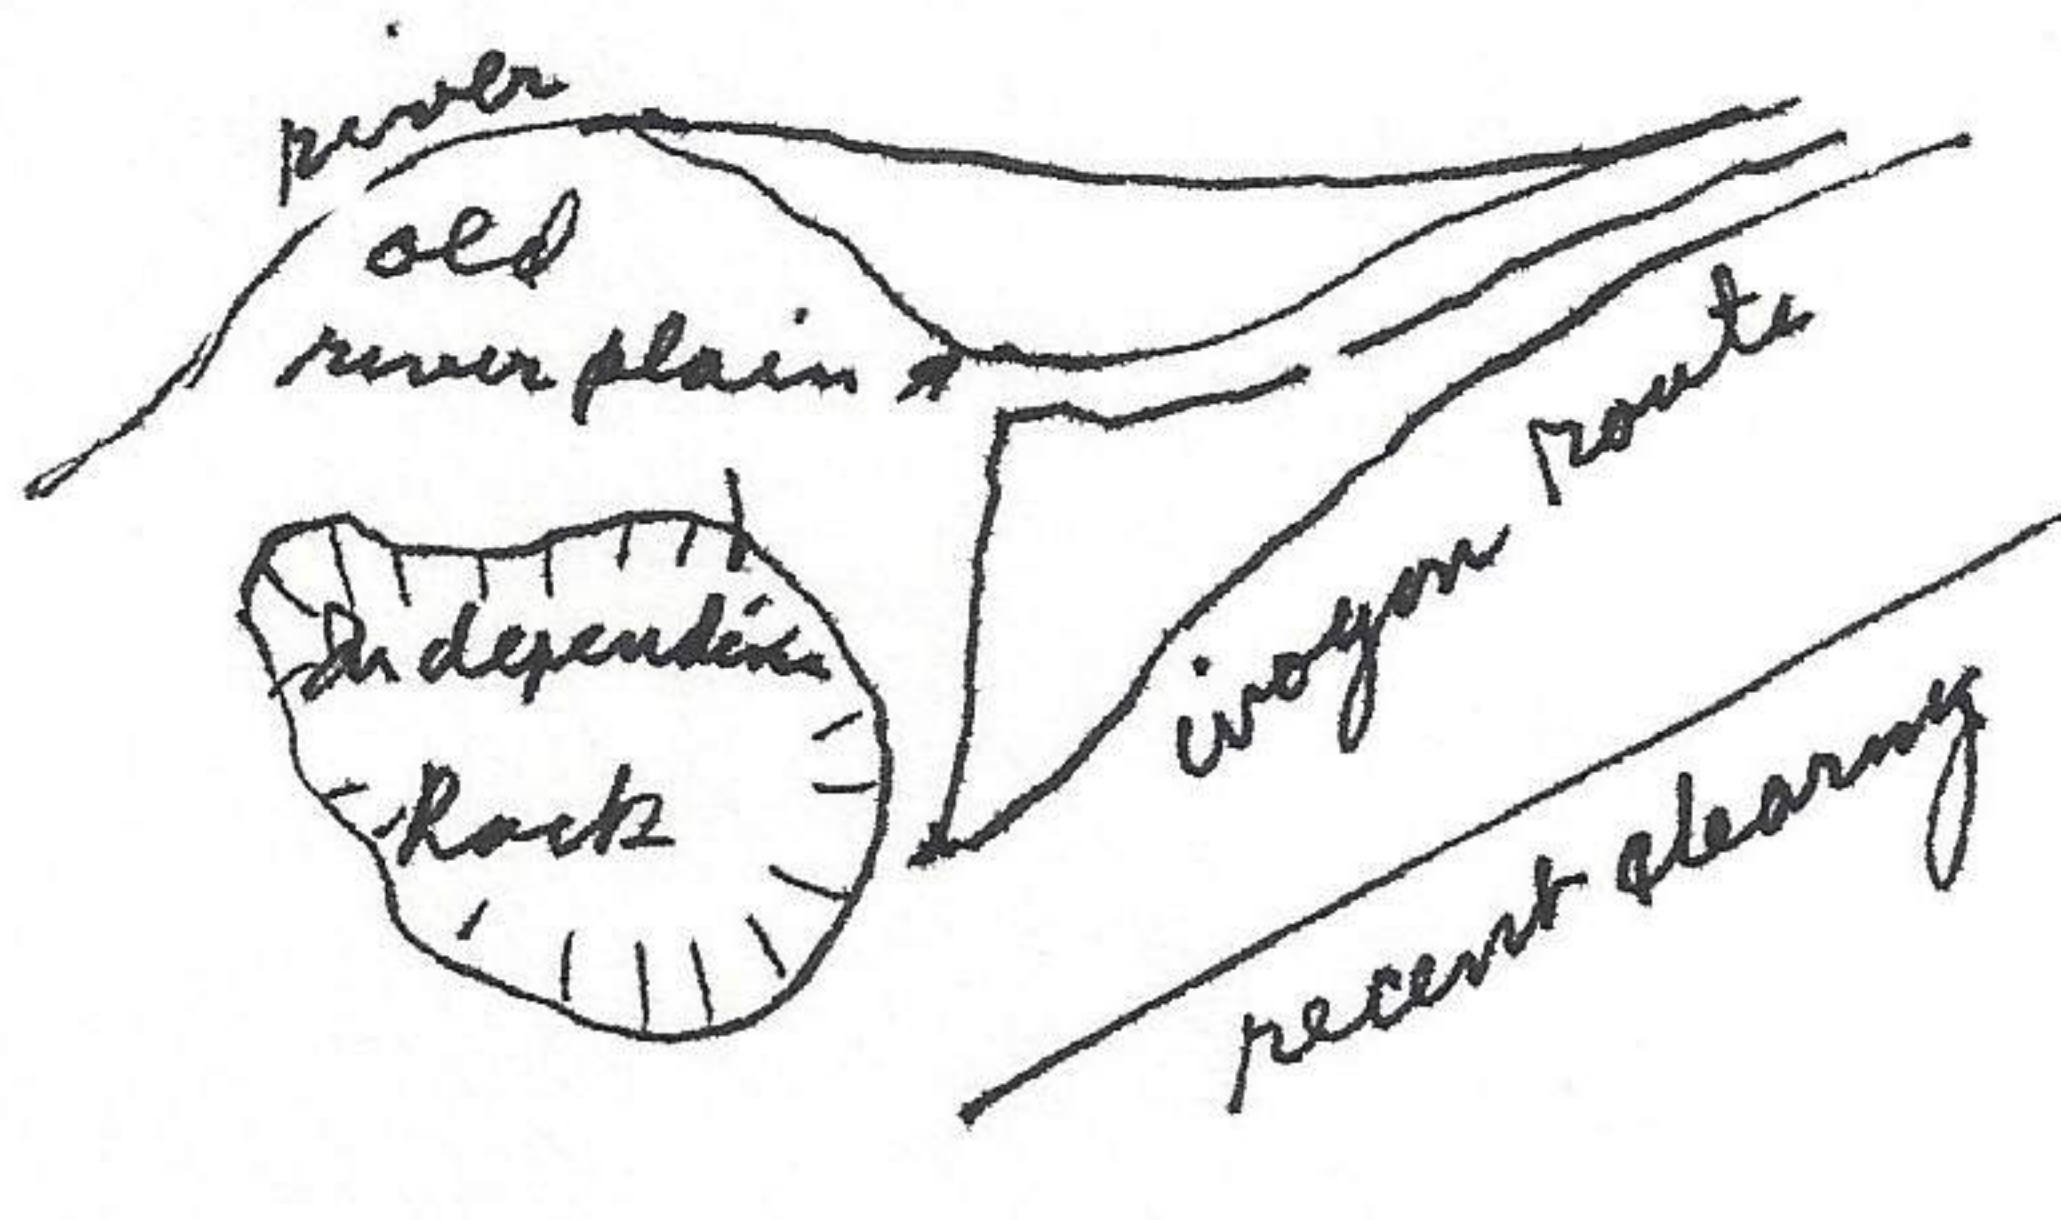 river
old
river plain
Independence
Rock
route
recent clearing